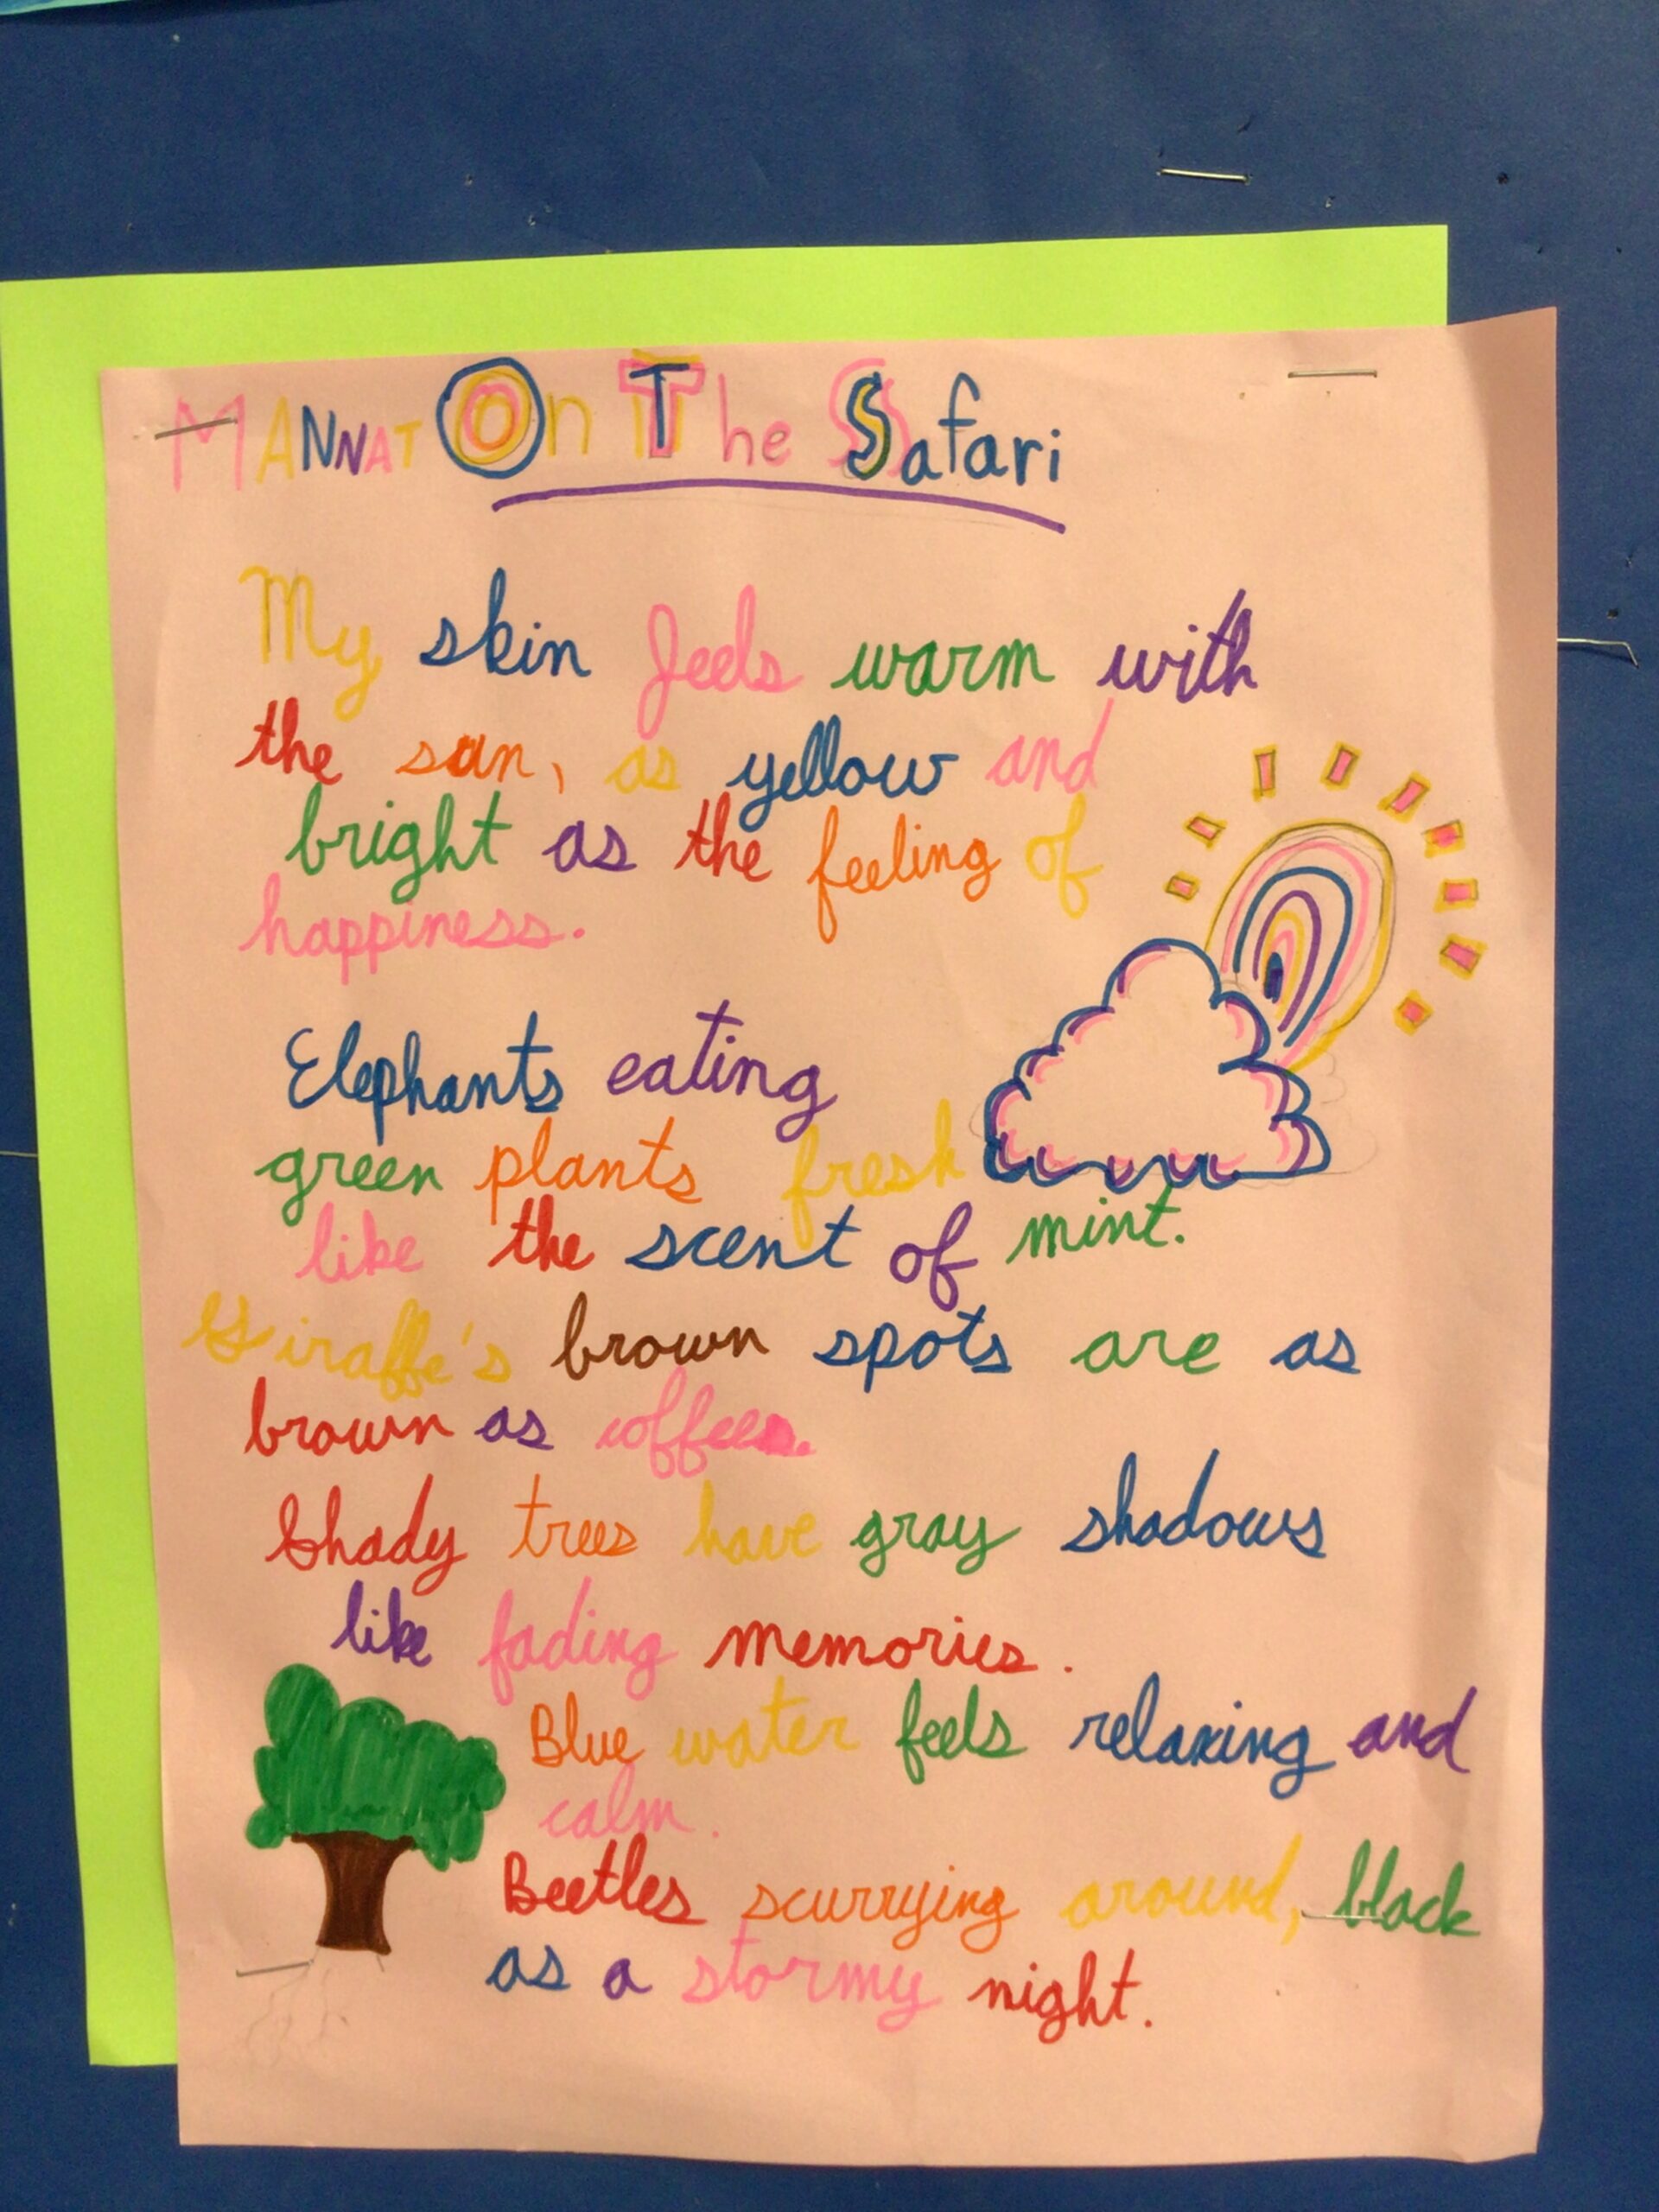 MANNAT On The Safari
My skin feels warm with
the sun, as yellow and
bright as the feeling of
happiness.
Elephants eating
green plants fresh
like the scent of mint.
Giraffe's brown spots are as
brown as coffee.
Shady trees have gray shadows
like fading memories.
Blue water feels relaxing and
calm.
Beetles scurrying around, black
as a stormy night.